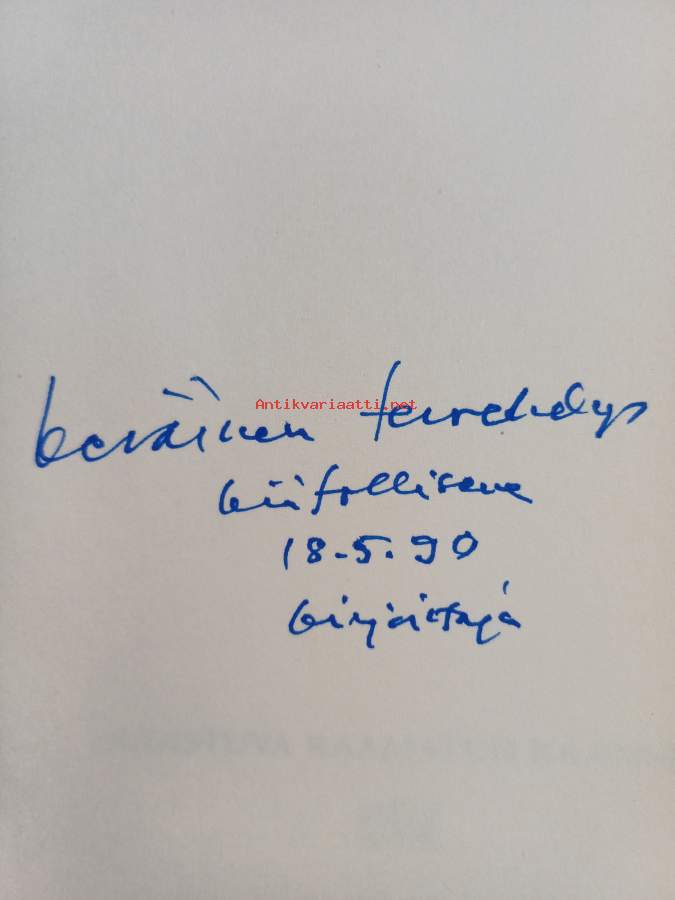 keväinen tervehdys
Antikvariaatti.net
kiitollisena
18.5.90
kirjoittaja